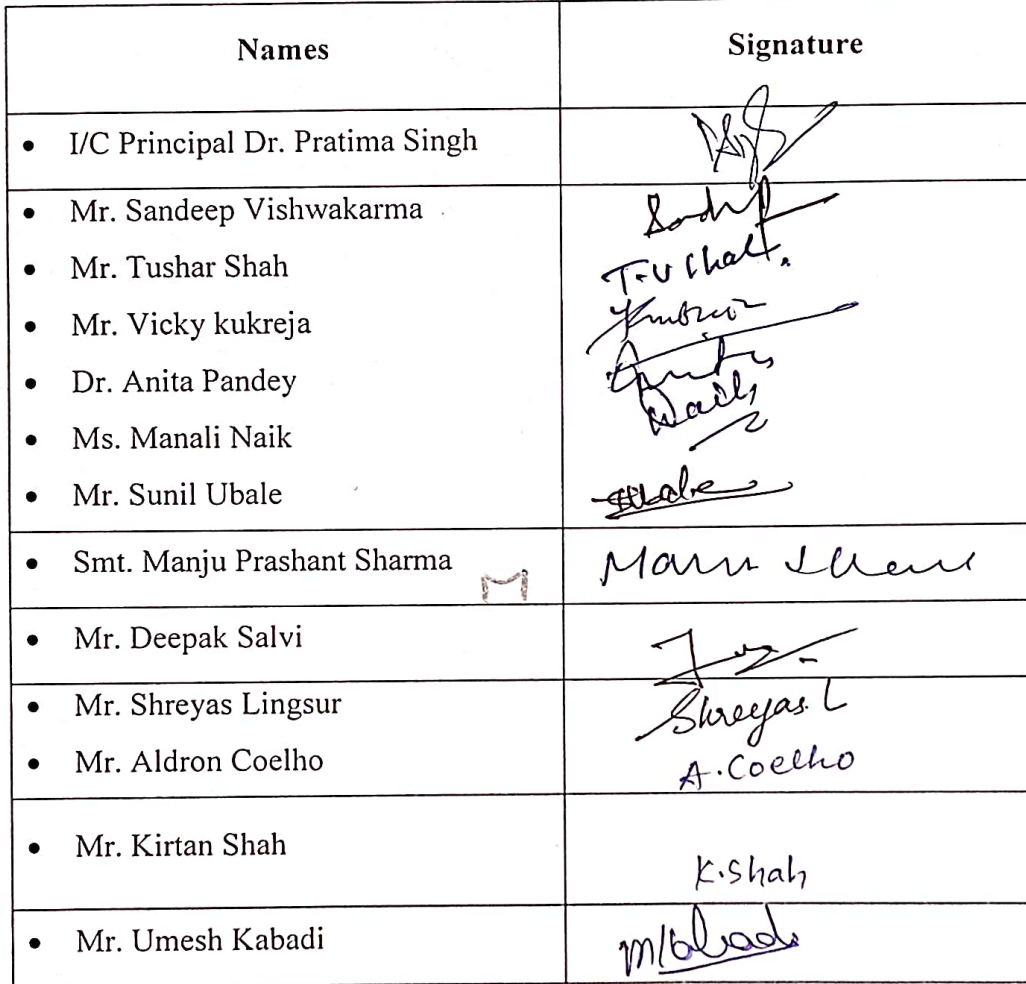 Names Signature
• I/C Principal Dr. Pratima Singh
• Mr. Sandeep Vishwakarma
• Mr. Tushar Shah T.V Shah.
• Mr. Vicky kukreja
• Dr. Anita Pandey
• Ms. Manali Naik Naik
• Mr. Sunil Ubale
• Smt. Manju Prashant Sharma
• Mr. Deepak Salvi
• Mr. Shreyas Lingsur Shreyas. L
• Mr. Aldron Coelho A. Coelho
• Mr. Kirtan Shah K. Shah
• Mr. Umesh Kabadi